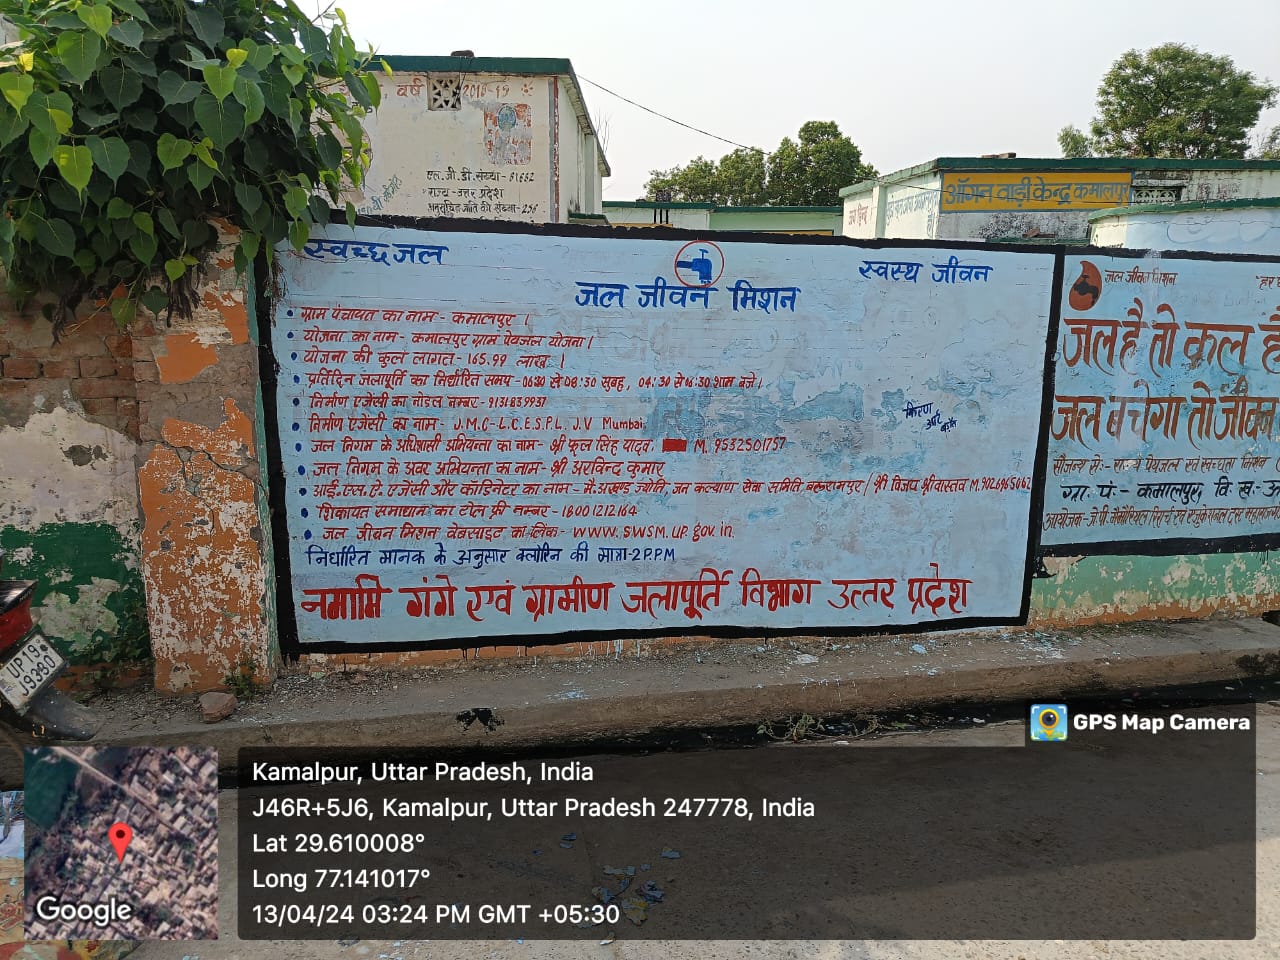 वर्ष 2018-19
एल.जी.डी. संख्या - 81662
राज्य - उत्तर प्रदेश
अनुसूचित जाति की संख्या - 256
ऑगनवाड़ी केन्द्र कमालपुर
स्वच्छ जल
स्वस्थ जीवन
जल जीवन मिशन
• ग्राम पंचायत का नाम - कमालपुर ।
• योजना का नाम - कमालपुर ग्राम पेयजल योजना ।
• योजना की कुल लागत - 165.99 लाख ।
• प्रतिदिन जलापूर्ति का निर्धारित समय - 06:30 से 08:30 सुबह, 04:30 से 06:30 शाम बजे ।
• निर्माण एजेंसी का नोडल नम्बर - 9131839931
• निर्माण एजेंसी का नाम - J.M.C-L.C.E.S.P.L. J.V Mumbai
• जल निगम के अधिशासी अभियन्ता का नाम - श्री फूल सिंह यादव, M. 9532501757
• जल निगम के अवर अभियन्ता का नाम - श्री अरविन्द कुमार
• आई.एस.ए. एजेंसी और कॉडिनेटर का नाम - मै. अखण्ड ज्योति, जन कल्याण सेवा समिति बलरामपुर / श्री विजय श्रीवास्तव M. 9026965062
• शिकायत समाधान का टोल फ्री नम्बर - 18001212164
• जल जीवन मिशन वेबसाइट का लिंक - www.SWSM.UP.gov.in.
निर्धारित मानक के अनुसार क्लोरिन की मात्रा - 2 P.P.M
नमामि गंगे एवं ग्रामीण जलापूर्ति विभाग उत्तर प्रदेश
किरण
आर्ट
जल जीवन मिशन
"हर
जल है तो कल है
जल बचेगा तो जीवन
सौजन्य से:- राज्य पेयजल एवं स्वच्छता मिशन
ग्रा. पं:- कमालपुर, वि. ख:-
UP19
J9390
GPS Map Camera
Kamalpur, Uttar Pradesh, India
J46R+5J6, Kamalpur, Uttar Pradesh 247778, India
Lat 29.610008°
Long 77.141017°
13/04/24 03:24 PM GMT +05:30
Google